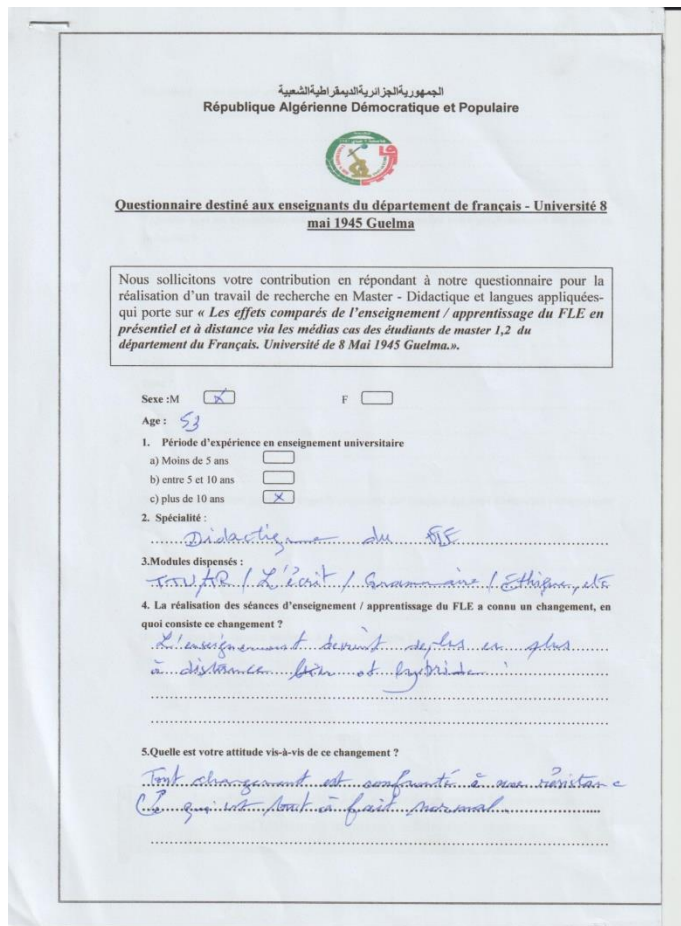 الجمهوريةالجزائريةالديمقراطيةالشعبية
République Algérienne Démocratique et Populaire
Questionnaire destiné aux enseignants du département de français - Université 8
mai 1945 Guelma
Nous sollicitons votre contribution en répondant à notre questionnaire pour la
réalisation d'un travail de recherche en Master - Didactique et langues appliquées-
qui porte sur « Les effets comparés de l'enseignement / apprentissage du FLE en
présentiel et à distance via les médias cas des étudiants de master 1,2 du
département du Français. Université de 8 Mai 1945 Guelma.».
Sexe :M X F
Age : 53
1. Période d'expérience en enseignement universitaire
a) Moins de 5 ans
b) entre 5 et 10 ans
c) plus de 10 ans X
2. Spécialité :
Didactique du FLE
3.Modules dispensés :
/ L'écrit / Grammaire / Ethique, etc
4. La réalisation des séances d'enseignement / apprentissage du FLE a connu un changement, en
quoi consiste ce changement ?
L'enseignement devient de plus en plus
à distance et hybride
5.Quelle est votre attitude vis-à-vis de ce changement ?
Tout changement est confronté à une résistance
Ce qui est tout à fait normal.